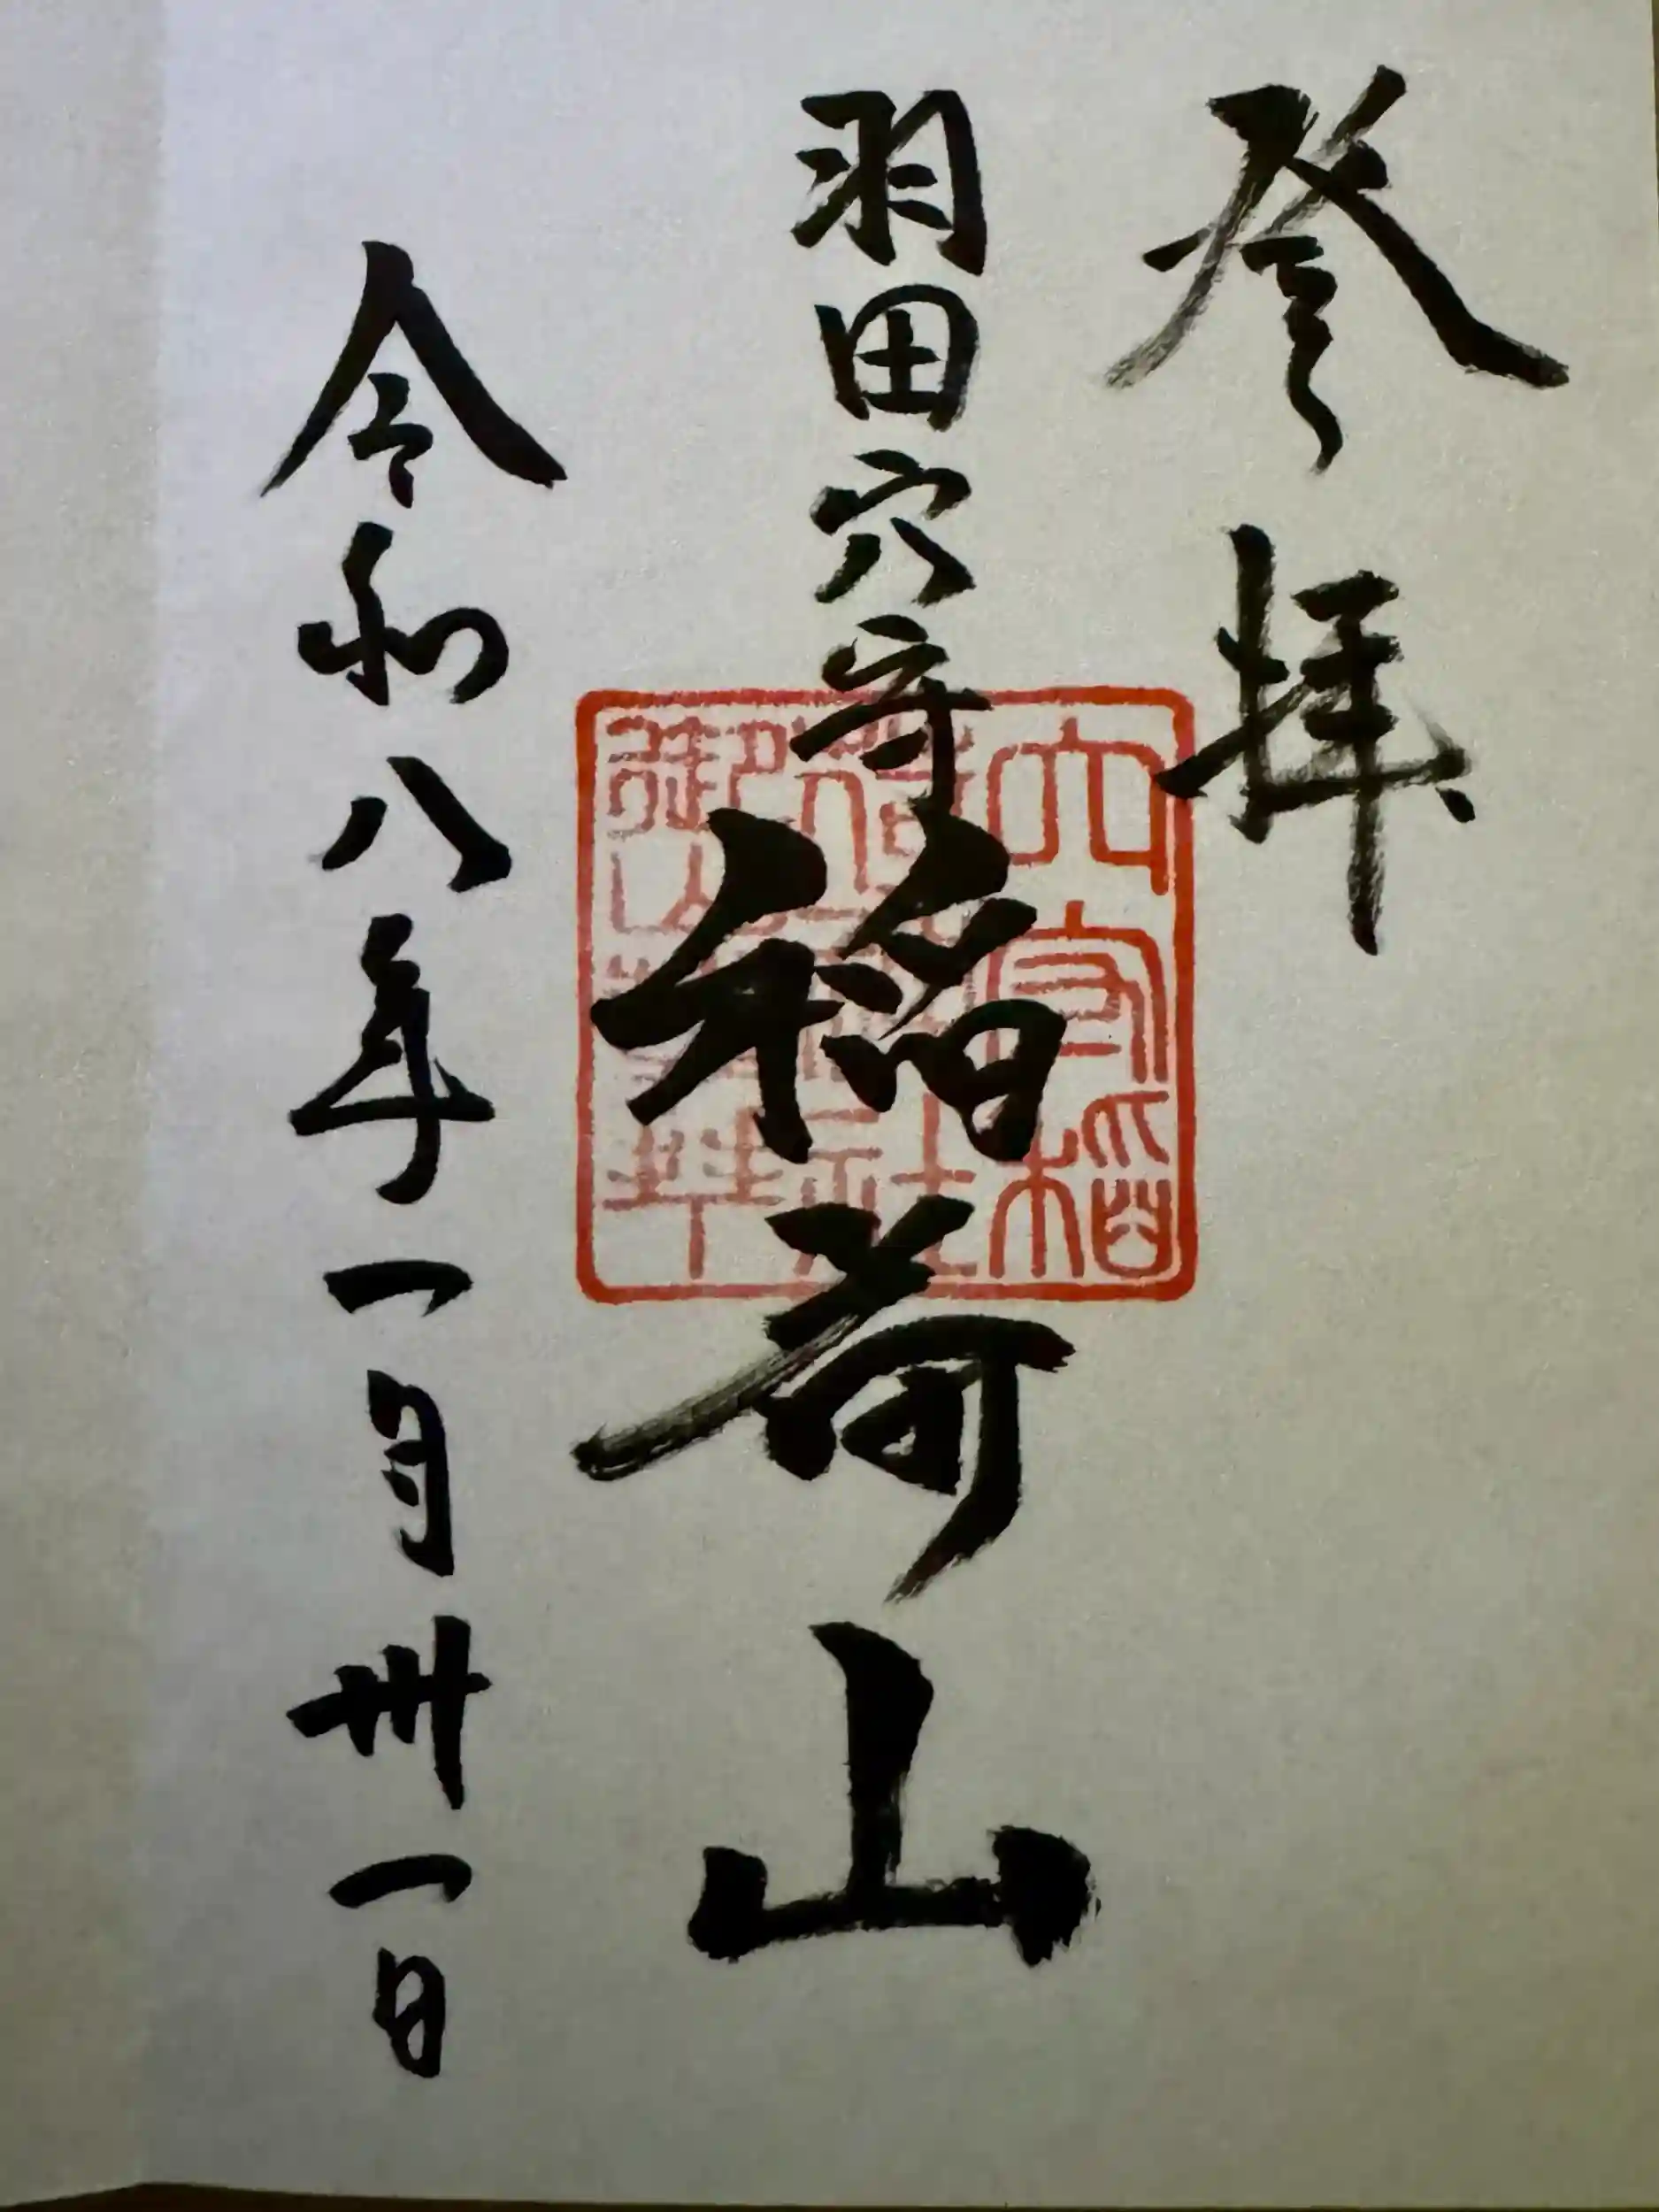 登拝
羽田穴守稲荷山
令和八年一月卅一日
穴守稲
荷神社